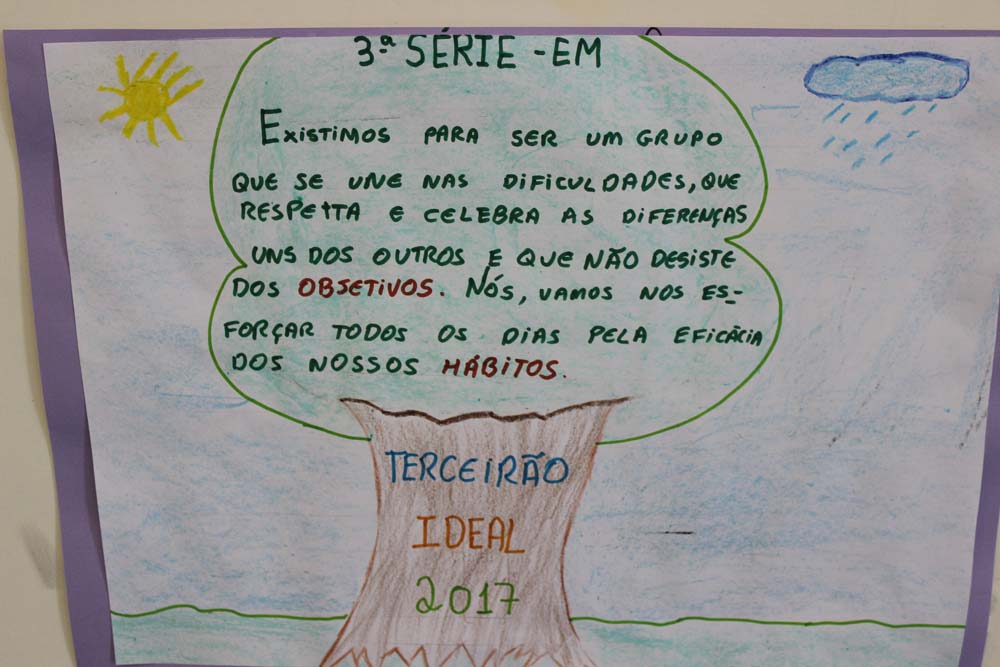 3ª SÉRIE - EM
EXISTIMOS PARA SER UM GRUPO
QUE SE UNE NAS DIFICULDADES, QUE
RESPEITA E CELEBRA AS DIFERENÇAS
UNS DOS OUTROS E QUE NÃO DESISTE
DOS OBJETIVOS. NÓS, VAMOS NOS ES-
FORÇAR TODOS OS DIAS PELA EFICÁCIA
DOS NOSSOS HÁBITOS.
TERCEIRÃO
IDEAL
2017